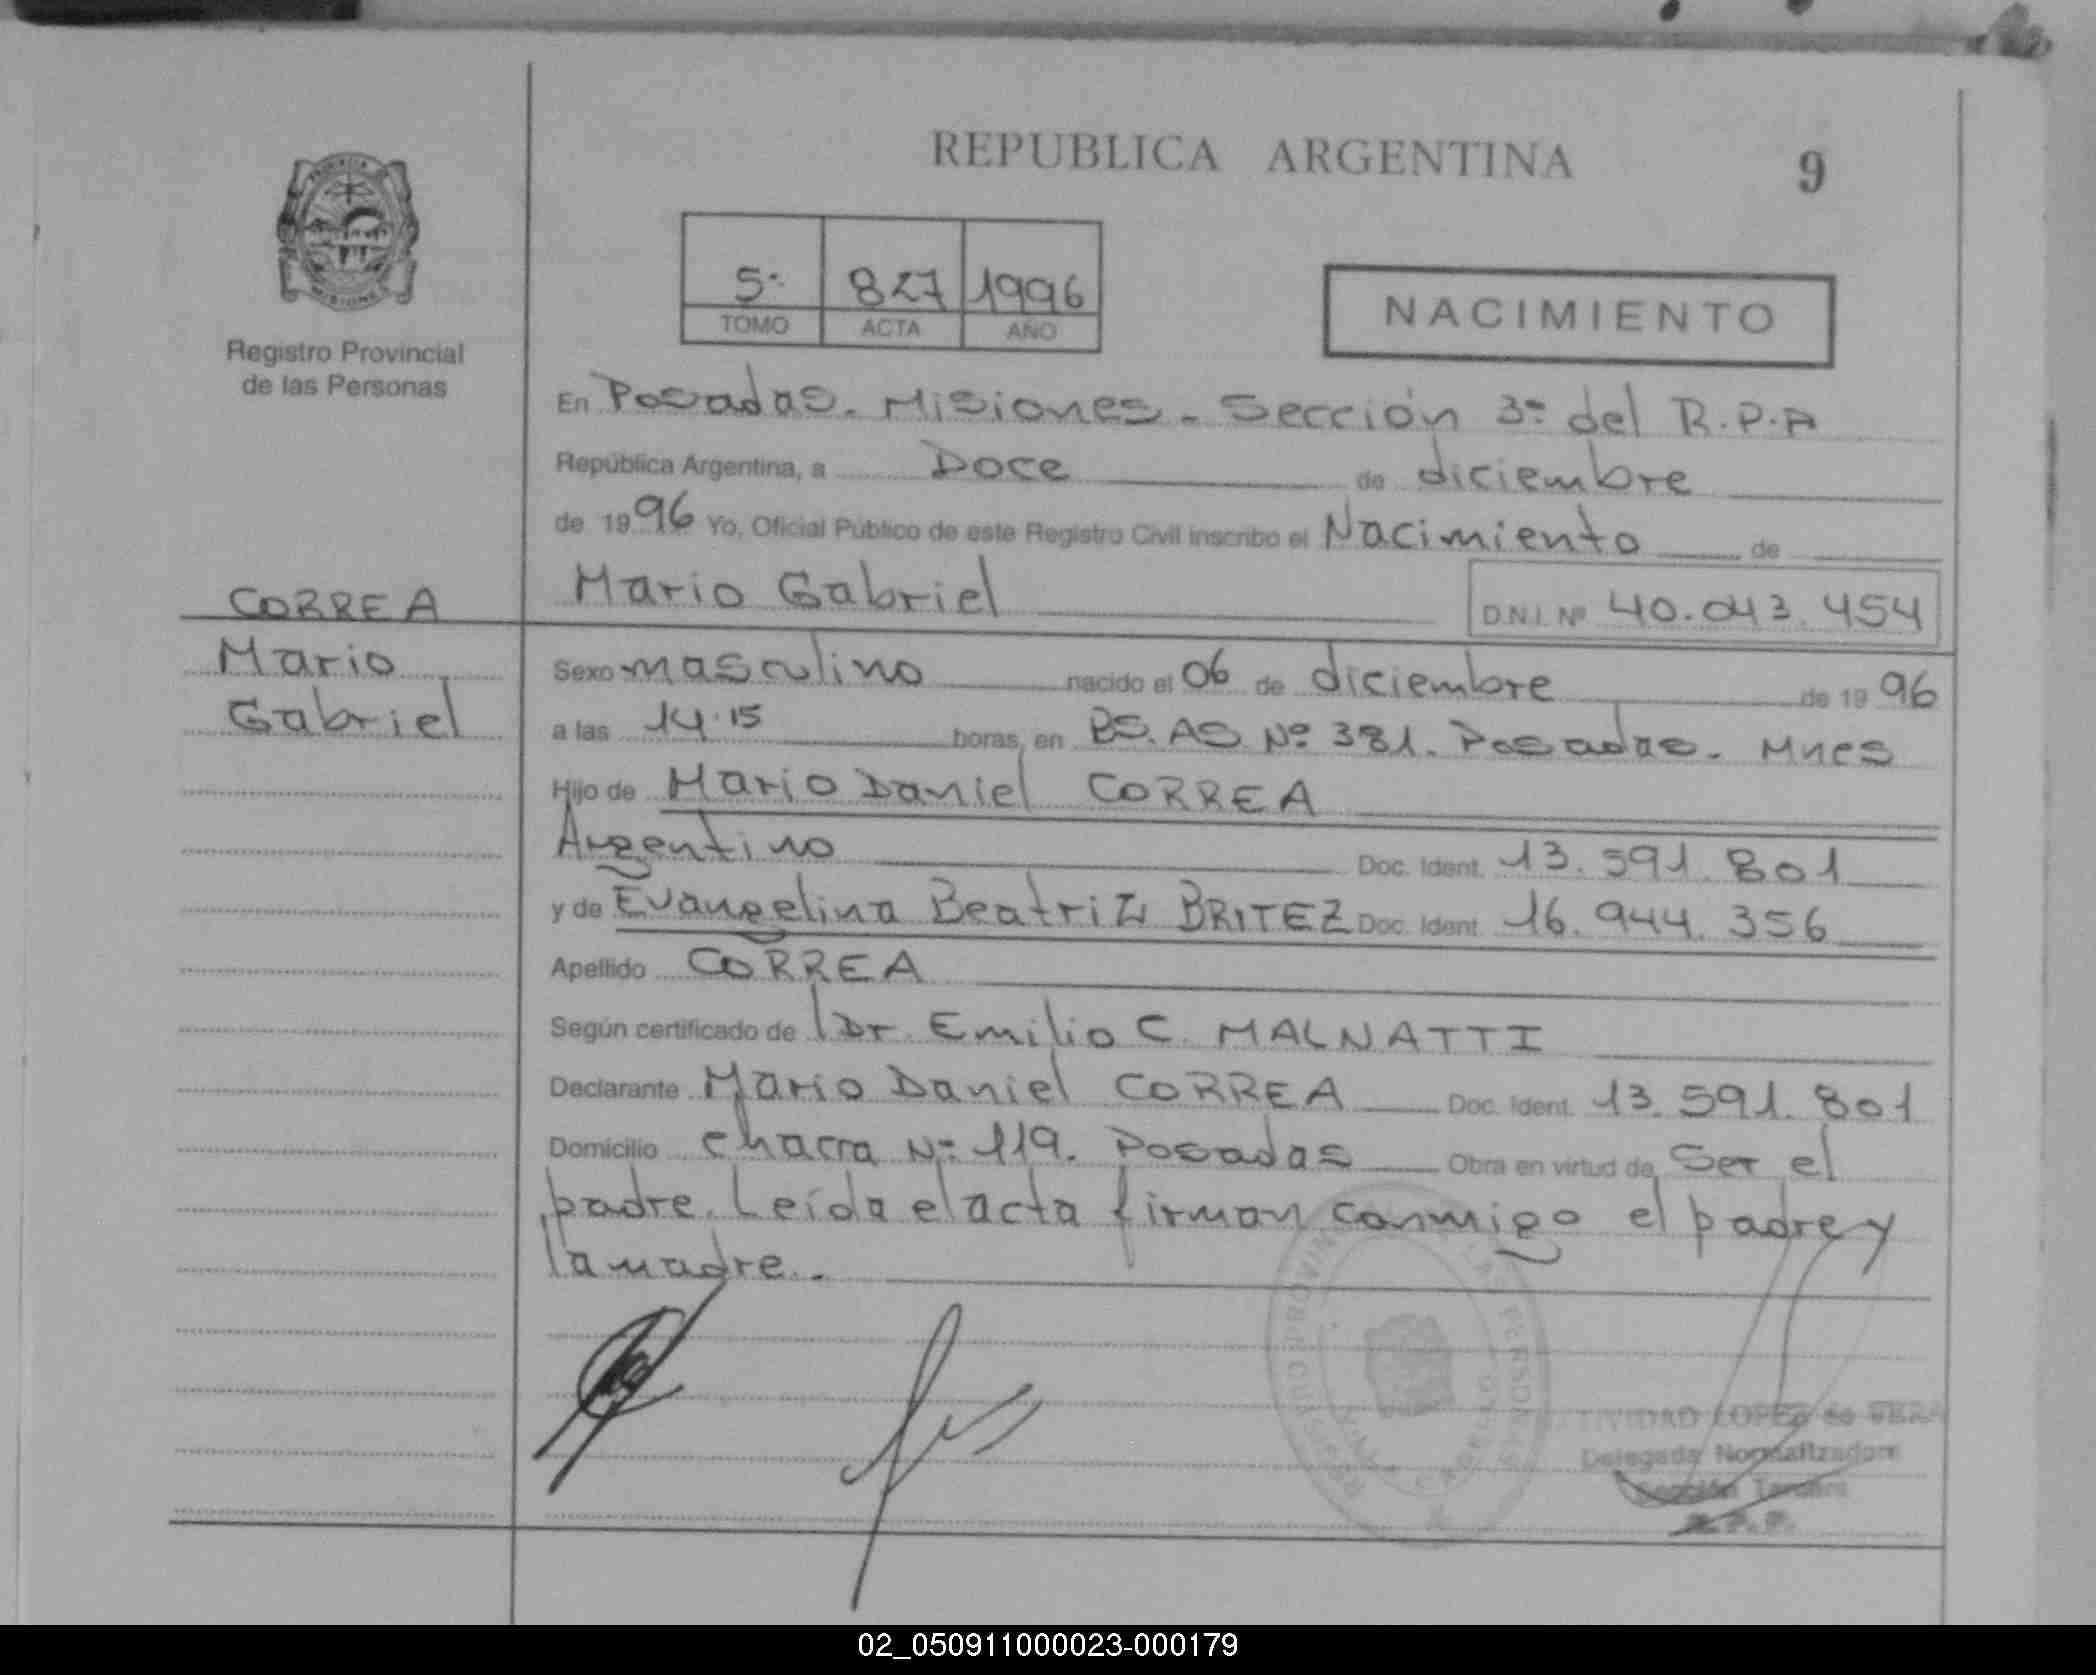 REPUBLICA ARGENTINA
9
PROVINCIA
MISIONES
Registro Provincial
de las Personas
5º 827 1996
TOMO ACTA AÑO
NACIMIENTO
En Posadas. Misiones. Sección 3º del R.P.A
República Argentina, a Doce de diciembre
de 1996 Yo, Oficial Público de este Registro Civil inscribo el Nacimiento de
CORREA
Mario
Gabriel
Mario Gabriel D.N.I. Nº 40.043.454
Sexo masculino nacido el 06 de diciembre de 1996
a las 14.15 horas, en BS.AS Nº 381. Posadas. Mnes
Hijo de Mario Daniel CORREA
Argentino Doc. Ident. 13.591.801
y de Evangelina Beatriz BRITEZ Doc. Ident. 16.944.356
Apellido CORREA
Según certificado de Dr. Emilio C. MALNATTI
Declarante Mario Daniel CORREA Doc. Ident. 13.591.801
Domicilio chacra Nº 119. Posadas Obra en virtud de Ser el
padre. Leída el acta firman conmigo el padre y
la madre.
LOPEZ de VERA
Delegada Normalizadora
Sección Tercera
02_050911000023-000179